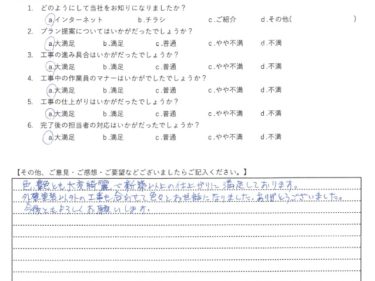 1. どのようにして当社をお知りになりましたか？
a.インターネット b.チラシ c.ご紹介 d.その他( )
2. プラン提案についてはいかがだったでしょうか？
a.大満足 b.満足 c.普通 c.やや不満 d.不満
3. 工事の進み具合はいかがだったでしょうか？
a.大満足 b.満足 c.普通 c.やや不満 d.不満
4. 工事中の作業員のマナーはいかがでしたでしょうか？
a.大満足 b.満足 c.普通 c.やや不満 d.不満
5. 工事の仕上がりはいかがだったでしょうか？
a.大満足 b.満足 c.普通 c.やや不満 d.不満
6. 完了後の担当者の対応はいかがだったでしょうか？
a.大満足 b.満足 c.普通 c.やや不満 d.不満
【その他、ご意見・ご感想・ご要望などございましたらご記入ください。】
色、艶とも大変綺麗で新築以上の仕上がりに満足しております。
外壁塗装以外の工事も含めて色々とお世話になりました。ありがとうございました。
今後ともよろしくお願いします。